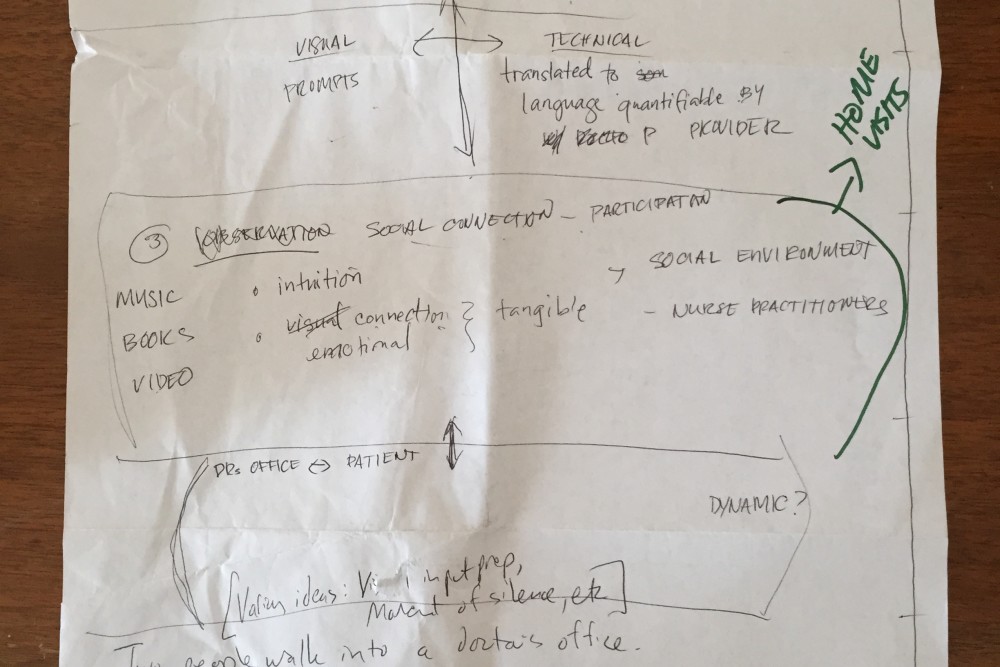 VISUAL
PROMPTS
TECHNICAL
translated to
language quantifiable BY
P PROVIDER
HOME
VISITS
3 OBSERVATION SOCIAL CONNECTION - PARTICIPATION
MUSIC
BOOKS
VIDEO
• intuition
• visual connection
emotional
} tangible
> SOCIAL ENVIRONMENT
- NURSE PRACTITIONERS
DRs OFFICE ↔ PATIENT
DYNAMIC?
[Various ideas: input prep,
Moment of silence, etc]
Two people walk into a doctor's office.